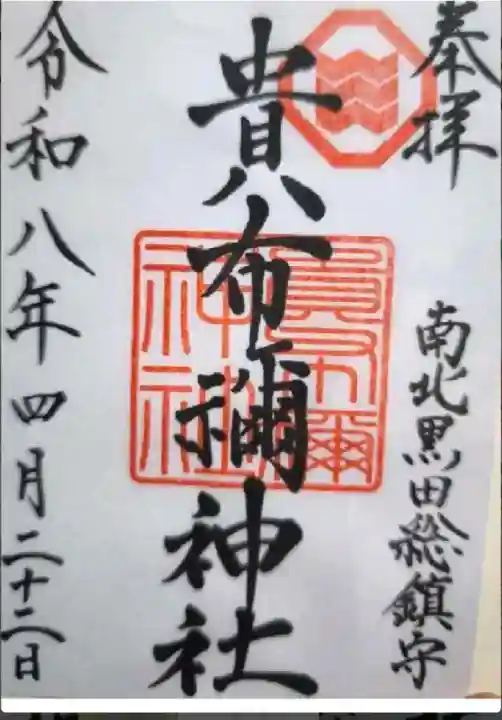 奉拝
南北黒田総鎮守
貴布禰神社
貴布禰神社
令和八年四月二十二日